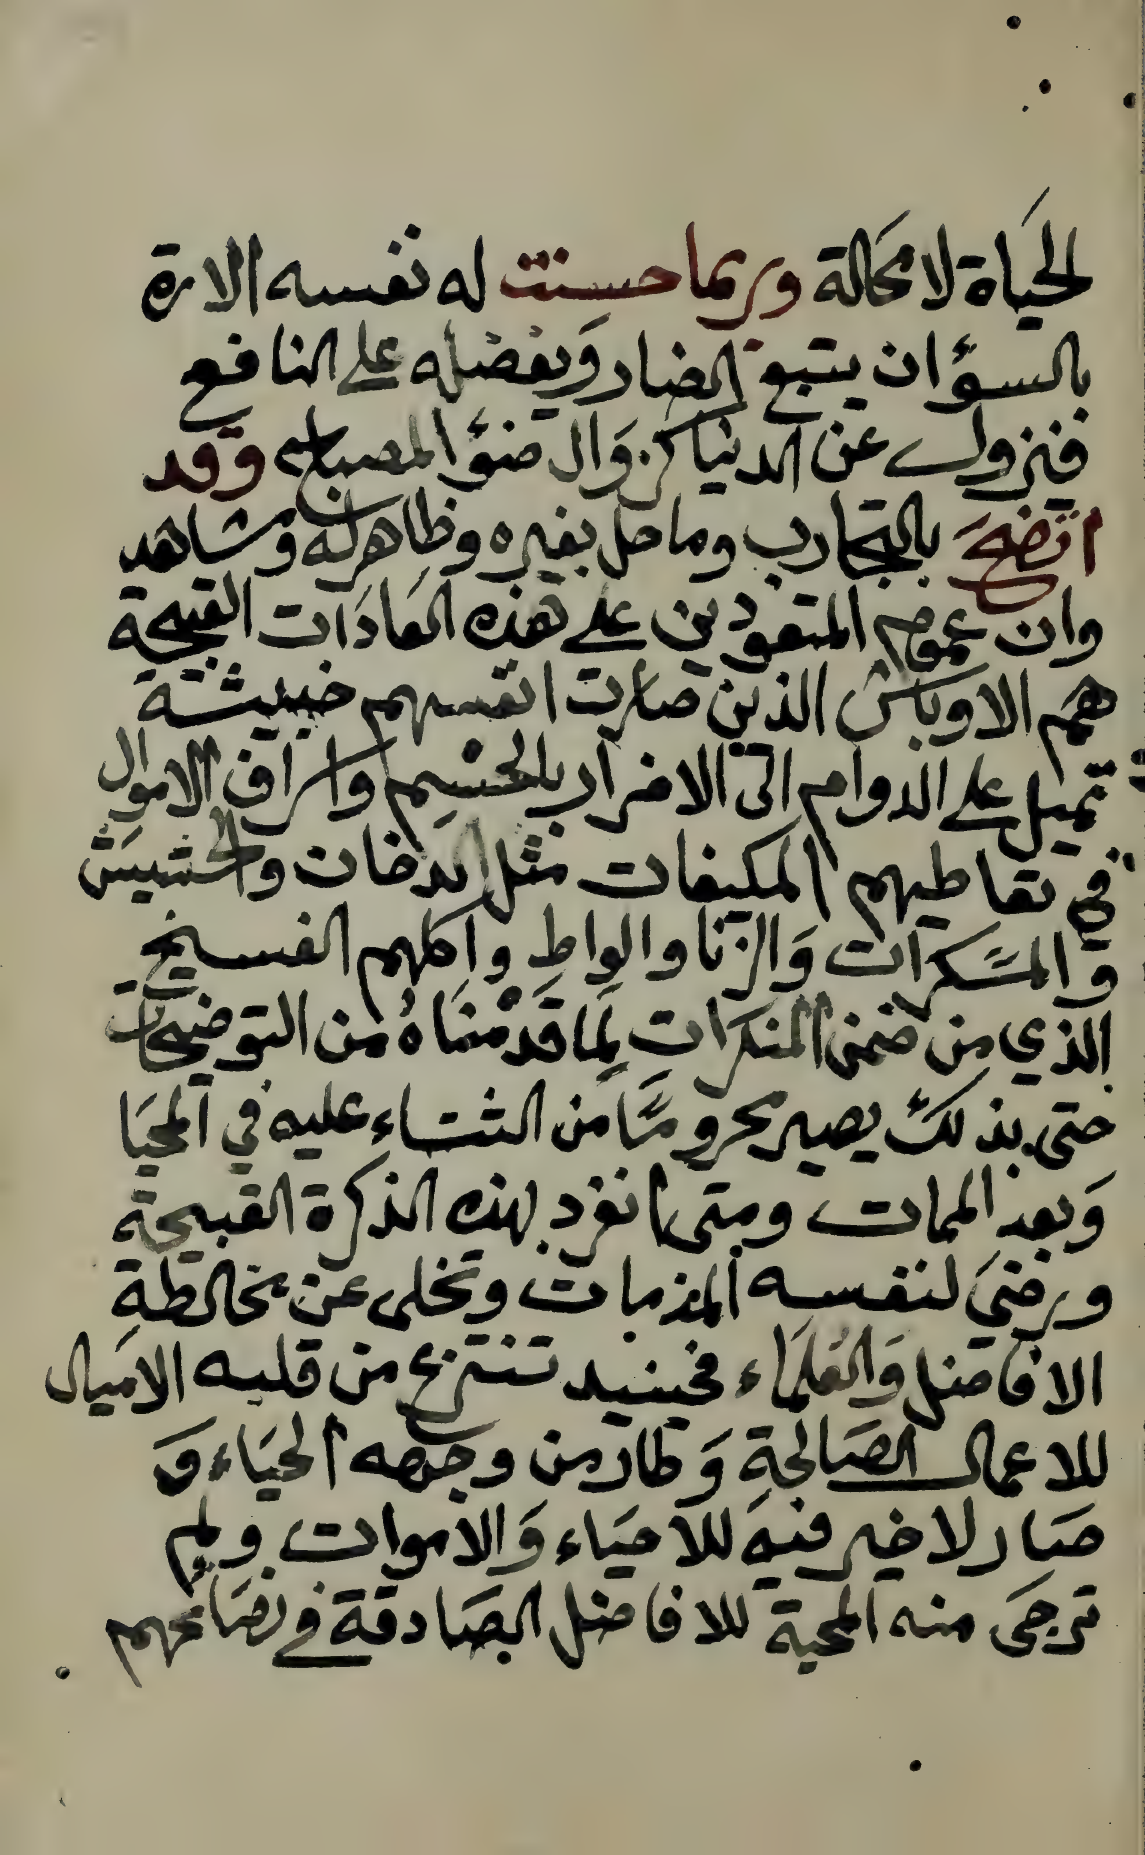 الحَياة لا محَالة وربما حسنت له نفسه الامارة
بالسؤ ان يتبع الضار وَيفضله على النافع
فيزول عن الدنيا كزوَال ضؤ المصباح وقد
اتضحَ بالتجارب وما حل بغيره وظاهر له ومشاهد
وان عموم المتعودين على هذه العَادَات القبيحة
همَ الاوباش الذين صارت انفسهم خبيثة
تميل على الدوام الى الاضرار بالجسيم واسراف الاموال
في تعاطيهم المكيفات مثل الدخان والحشيش
والمسَكرات وَالزنا والواط واكلهم الفسيخ
الذي من ضمن المنكرات لِمَا قدمنَاهُ من التوضيحات
حتى بذلك يصير محرومًا من الثناء عليه في المحيَا
وَبعد الممات ومتى انفرد بهذه الذكرة القبيحة
ورضيَ لنفسه المذمات وتخلى عن مخالطةِ
الافاضل وَالعُلمَاء فحينيد تنتزع من قلبه الاميال
للاعمال الصَالحةِ وَطار من وجهه الحيَاء وَ
صَار لا خير فيهِ للاحيَاء وَالاموات ولم
ترجَى منه المحبة للافاضل الصَادقة في نصَائحهم